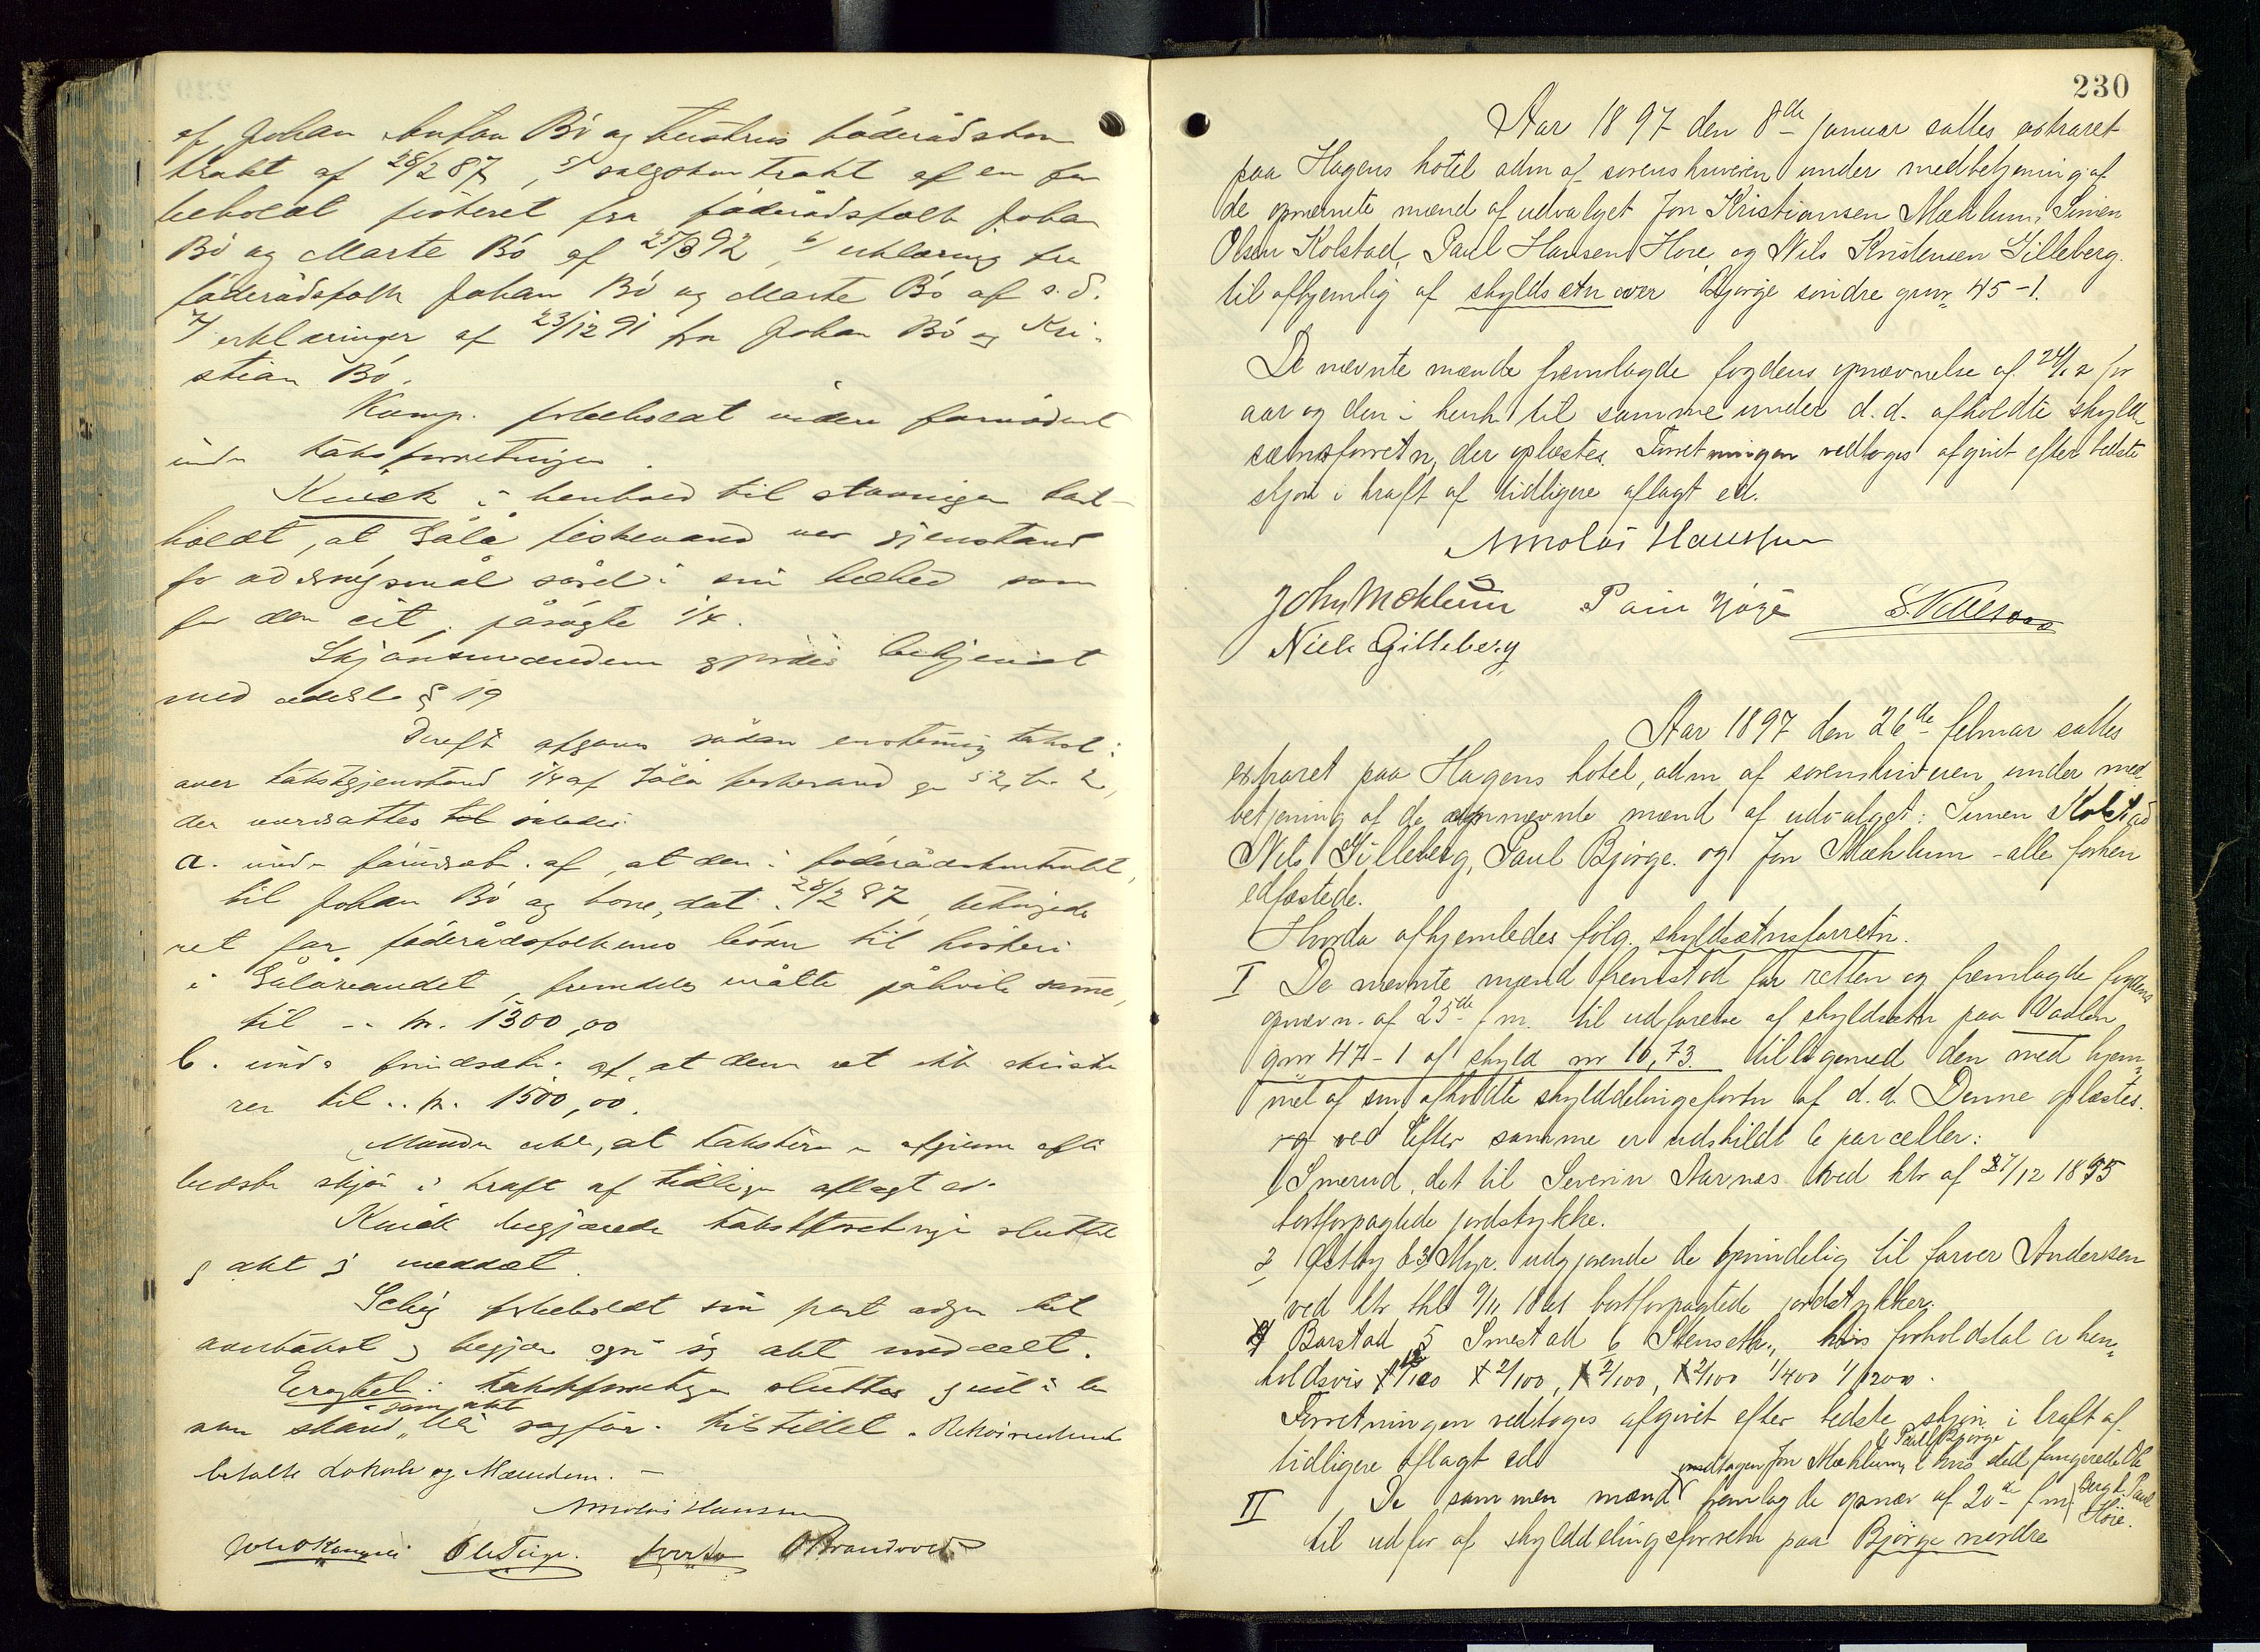 af Johan Anton Bö og hustrus föderådskon
trakt af 28/2 87, 5/ salgskontrakt af en for
beholdt fisteret fra föderådsfolk Johan
Bö og Marte Bö af 25/3 92, 6/ erklæring fra
föderådsfolk Johan Bö og Marte Bö af s. d.
7/ erklæringer af 23/12 91 fra Johan Bö og Kri-
stian Bö.
Komp. forbeholdt videre fornödent
under takstforretningen.
i henhold til stevningen fast-
holdt, at Gålå fiskevand var gjenstand
for odelssögsmål såvel i sin helhed som
for den påsögte 1/4.
Skjönsmændene gjordes bekjendt
med § 19
Derefter afgaves sådan enstemmig takst:
over takstgjenstand 1/4 af Gålå fiskevand g. 52, br. 2,
der værdsattes til således:
a. under forudsætn. af, at den i föderådskontrakt,
til Johan Bö og kone, dat. 28/2 87, betingede
ret for föderådsfolkenes börn til fiskeri
i Gålåvandet, fremdeles måtte påhvile samme,
til -- kr. 1300,00
b. under forudsætn. af, at denne ret ikke eksiste
rer til .. kr. 1500,00.
Mændene erkl., at taksten er afgiven efter
bedste skjön i kraft af tidligere aflagt ed.
begjærede takstforretningen sluttet
g akt g meddelt.
forbeholdt sin part adgang til
overtakst og begjær. også sig akt meddelt.
Eragtet: Takstforretningen sluttes g
som akt
som stand sagför. tilstillet. Rekvirenterne
betalte Lokale og Mændene. –
Nicolai Hansen
Ole Teige. O Brandvold
230
Aar 1897 den 8de januar sattes extraret
paa Hagens hotel adm af sorenskriveren under medbetjening af
de opnævnte mænd af udvalget Jon Kristiansen Mæhlum, Simen
Olsen Kolstad, Paul Hansen Höie og Nils Kristensen Gilleberg.
til afhjemlig af skyldsætn over Bjørge söndre grnr 45-1.
De nævnte mænde fremlagde fogdens opnævnelse af 24/12 f
aar og den i henh til samme under d.d. afholdte skyld
sætnsforretn, der oplæstes. Forretningen vedtoges afgivet efter bedste
skjøn i kraft af tidligere aflagt ed.
Nicolai Hansen
John Mæhlum Paul Höge S. Kolstad
Niels Gilleberg
Aar 1897 den 26de februar sattes
extraret paa Hagens hotel, adm. af sorenskriveren under med-
betjening af de opnævnte mænd af udvalget: Simen Kolstad
Nils Gilleberg, Paul Bjørge og Jon Mæhlum – alle forhen
edfæstede.
Hvorda afhjemledes følg. skyldsætnsforretn.
I De nævnte mænd fremstod for retten og fremlagde fogdens
opnævn. af 25de f m. til udførelse af skyldsætn paa Vaalen
gnr 47-1 af skyld mr 10,73. tilligemed den med hjem-
mel af samme afholdte skylddelingsforr af d. d. Denne oplæstes.
og ved Efter samme er udskildt 6 parceller:
1 Smerud, det til Severin Aarnæs ved ktr af 27/12 1895
bortforpagtede jordstykke.
2 Østby 3 Myr. udgjørende de oprindelig til farver Andersen
ved ktr thl 9/11 1861 bortforpagtede jordstykker.
4 Barstad 5 Smestad 6 Stenseth, hvis forholdstal er hen-
holdsvis 1/100 2/100, 2/100, 2/100 1/400 1/1200.
Forretningen vedtoges afgivet efter bedste skjøn i kraft af
tidligere aflagt ed
undtagen Jon Mæhlum & Paul Bjørge i hvis sted fungerede Ole
Bergh. Paul
Höie.
II De sammen mænd fremlagde opnæv af 20de f m
til udfør af skylddelingsforretn paa Bjørge nordre